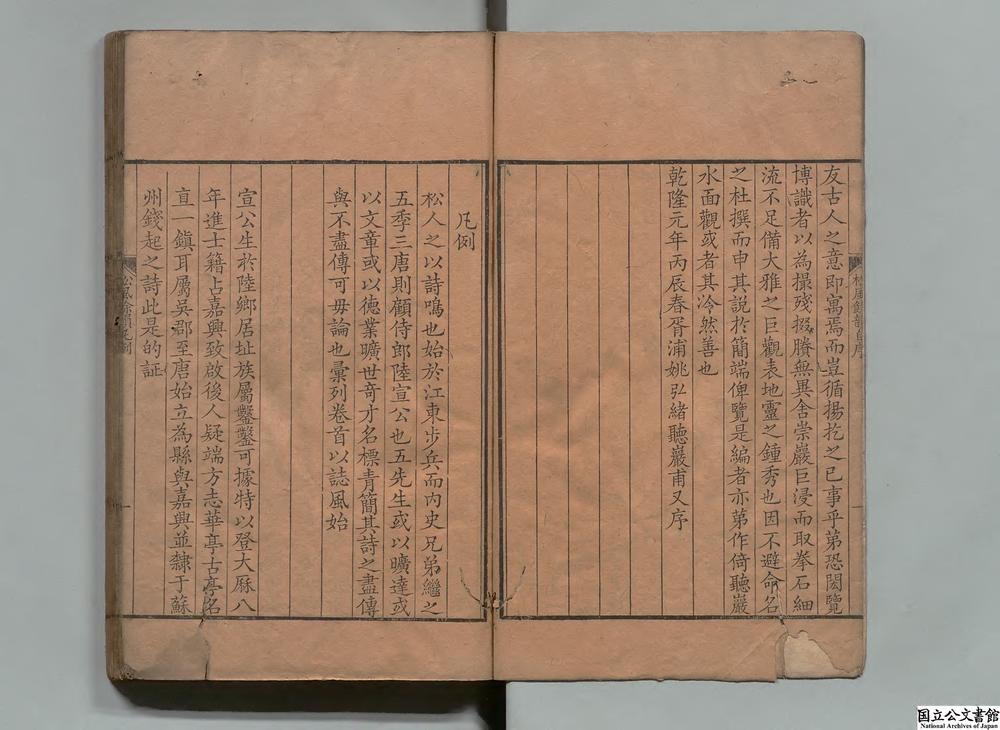 友古人之意即寓焉而豈循揚扢之已事乎第恐閎覽
博識者以為撮殘掇賸無異舍崇巖巨浸而取拳石細
流不足備大雅之巨觀表地靈之鍾秀也因不避命名
之杜撰而申其說於簡端俾覽是編者亦第作倚聽巖
水面觀或者其泠然善也
乾隆元年丙辰春胥浦姚弘緒聽巖甫又序
松風餘韻自序
凡例
松人之以詩鳴也始於江東步兵而內史兄弟繼之
五季三唐則顧侍郎陸宣公也五先生或以曠達或
以文章或以德業曠世奇才名標青簡其詩之盡傳
與不盡傳可毋論也彙列卷首以誌風始
宣公生於陸鄉居址族屬鑿鑿可據特以登大厯八
年進士籍占嘉興致啟後人疑端方志華亭古亭名
直一鎮耳屬吳郡至唐始立為縣與嘉興並隸于蘇
州錢起之詩此是的証
松風餘韻凡例
一
国立公文書館
National Archives of Japan